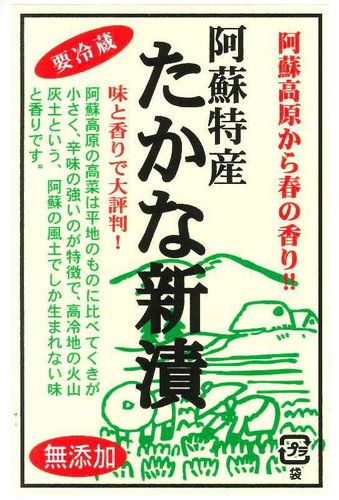 阿蘇高原から春の香り!!
阿蘇特産
たかな新漬
味と香りで大評判!
要冷蔵
阿蘇高原の高菜は平地のものに比べてくきが
小さく、辛味の強いのが特徴で、高冷地の火山
灰土という、阿蘇の風土でしか生まれない味
と香りです。
無添加
プラ
袋